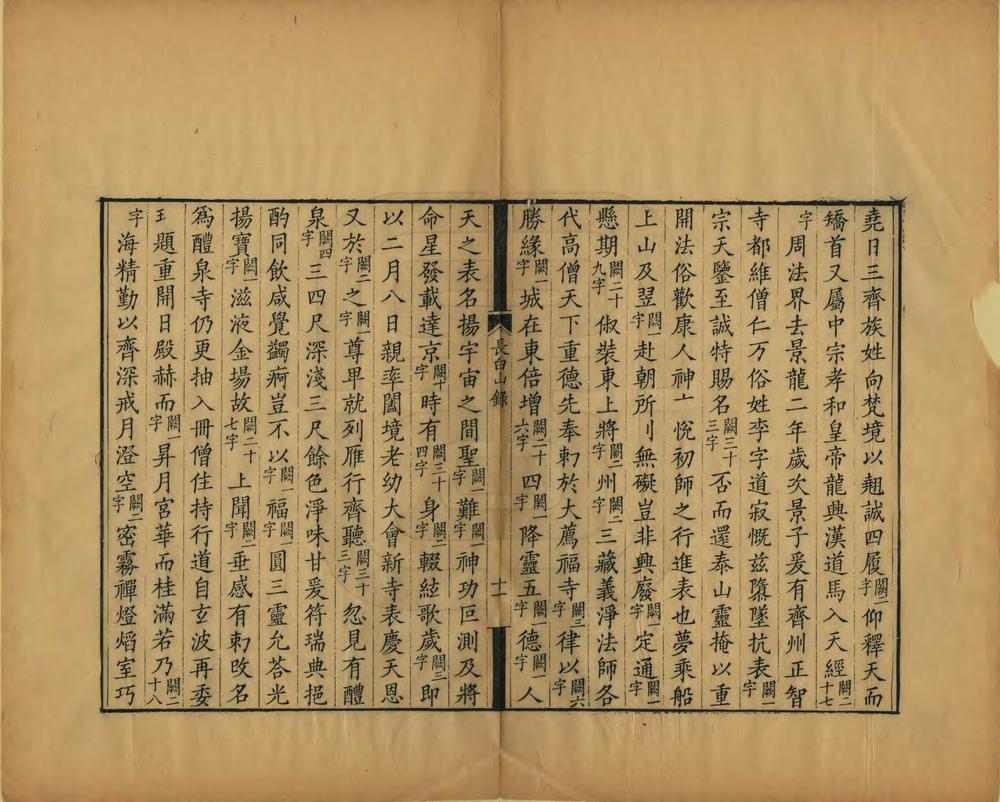 堯日三齊族姓向梵境以翹誠四履闕二字仰釋天而
矯首又屬中宗孝和皇帝龍興漢道馬入天經闕二十七
字周法界去景龍二年歲次景子爰有齊州正智
寺都維僧仁万俗姓李字道寂慨茲隳墜抗表闕一字
宗天鑒至誠特賜名闕三十三字否而還泰山靈掩以重
開法俗歡康人神亠悅初師之行進表也夢乘船
上山及翌闕一字赴朝所刂無礙豈非興廢闕一字定通闕一字
懸期闕二十九字俶裝東上將闕二字州闕二字三藏義淨法師各
代高僧天下重德先奉勑於大薦福寺闕三字律以闕六字
勝緣闕一字城在東倍增闕二十六字四闕一字降靈五闕一字德闕一字人
長白山錄
十一
天之表名揚宇宙之間聖闕一字難闕一字神功叵測及將
命星發載達京闕十字時有闕三十四字身闕二字輟絃歌歲闕三字即
以二月八日親率闔境老幼大會新寺表慶天恩
又於闕二字之闕一字尊卑就列雁行齊聽闕三十三字忽見有醴
泉闕四字三四尺深淺三尺餘色淨味甘爰符瑞典挹
酌同飲咸覺蠲痾豈不以闕一字福闕一字圓三靈允荅光
揚寶闕一字滋液金場故闕二十七字上聞闕二字垂感有勑改名
爲醴泉寺仍更抽入冊僧住持行道自玄波再委
玉題重開日殿赫而闕一字昇月宮華而桂滿若乃闕二十八
字海精勤以齊深戒月澄空闕二字密霧禪燈熖室巧